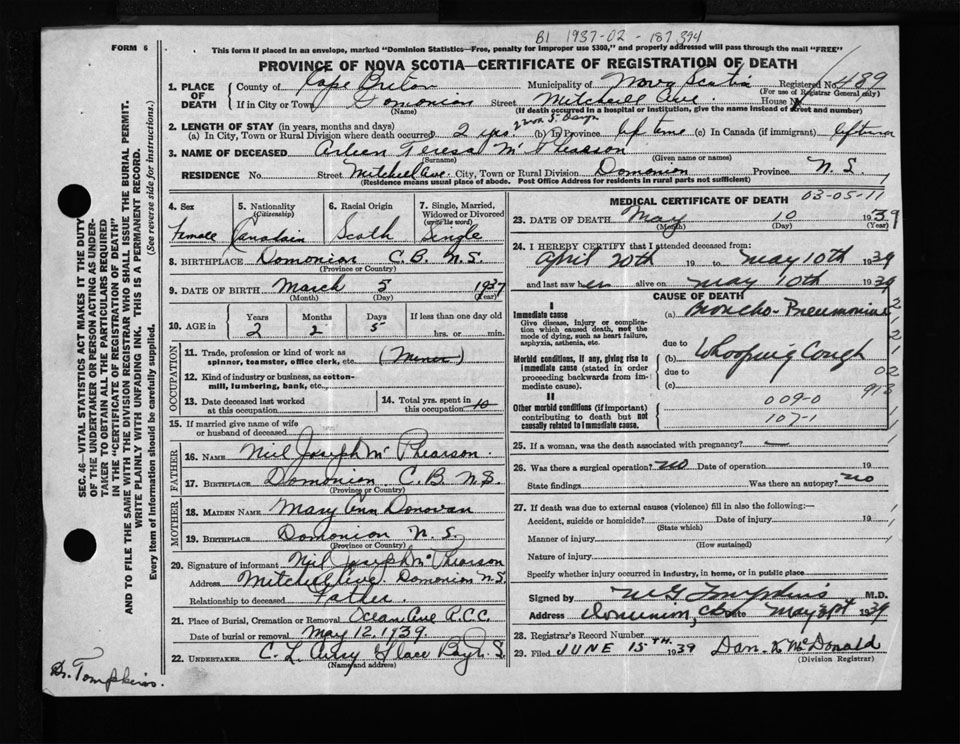 B1 1937-02-187394
FORM 6
This form if placed in an envelope, marked "Dominion Statistics—Free, penalty for improper use $300," and properly addressed will pass through the mail "FREE"
PROVINCE OF NOVA SCOTIA—CERTIFICATE OF REGISTRATION OF DEATH
SEC. 46—VITAL STATISTICS ACT MAKES IT THE DUTY
OF THE UNDERTAKER OR PERSON ACTING AS UNDER-
TAKER TO OBTAIN ALL THE PARTICULARS REQUIRED
IN THE "CERTIFICATE OF REGISTRATION OF DEATH"
AND TO FILE THE SAME WITH THE DIVISION REGISTRAR WHO SHALL ISSUE THE BURIAL PERMIT.
WRITE PLAINLY WITH UNFADING INK. THIS IS A PERMANENT RECORD.
Every item of information should be carefully supplied. (See reverse side for instructions.)
1. PLACE OF DEATH County of Cape Breton Municipality of Nova Scotia Registered No. 489
(For use of Registrar General only)
If in City or Town Domonion Street Mitchell Ave House No
(Name) (If death occurred in a hospital or institution, give the name instead of street and number)
2. LENGTH OF STAY (in years, months and days)
(a) In City, Town or Rural Division where death occurred 2 yrs. 2 mon 5 days (b) In Province lif time (c) In Canada (if immigrant) liftime
3. NAME OF DECEASED Arleen Teresa Mc Phearson
(Surname) (Given name or names)
RESIDENCE No. Street Mitchell Ave. City, Town or Rural Division Domonion Province N. S.
(Residence means usual place of abode. Post Office Address for residents in rural parts not sufficient)
4. Sex Female
5. Nationality (Citizenship) Canadain
6. Racial Origin Scoth
7. Single, Married, Widowed or Divorced (write the word) Single
8. BIRTHPLACE Domonion C.B. N.S.
(Province or Country)
9. DATE OF BIRTH March 5 1937
(Month) (Day) (Year)
10. AGE in Years 2 Months 2 Days 5 If less than one day old hrs. or min.
OCCUPATION
11. Trade, profession or kind of work as spinner, teamster, office clerk, etc. (Minor)
12. Kind of industry or business, as cotton-mill, lumbering, bank, etc.
13. Date deceased last worked at this occupation
14. Total yrs. spent in this occupation
15. If married give name of wife or husband of deceased
FATHER
16. NAME Neil Joseph Mc Phearson
17. BIRTHPLACE Domonion C.B. N.S.
(Province or Country)
MOTHER
18. MAIDEN NAME Mary Ann Donovan
19. BIRTHPLACE Domonion N. S.
(Province or Country)
20. Signature of informant Neil Joseph Mc Phearson
Address Mitchell Ave. Domonion N.S.
Relationship to deceased Father.
21. Place of Burial, Cremation or Removal Ocean Ave R.C.C.
Date of burial or removal May 12, 1939.
22. UNDERTAKER C. L. Glace Bay N.S.
(Name and address)
Dr. Tompkins.
03-05-11
MEDICAL CERTIFICATE OF DEATH
23. DATE OF DEATH May 10 1939
(Month) (Day) (Year)
24. I HEREBY CERTIFY that I attended deceased from:
April 20th 19 to May 10th 1939
and last saw her alive on May 10th 1939
CAUSE OF DEATH
I
Immediate cause
Give disease, injury or complication which caused death, not the mode of dying, such as heart failure, asphyxia, asthenia, etc.
(a) Broncho-Pneumonia
due to
Morbid conditions, if any, giving rise to immediate cause (stated in order proceeding backwards from immediate cause).
(b) Whooping Cough
due to 02
(c) 913
II
Other morbid conditions (if important) contributing to death but not causally related to immediate cause.
009-0
107-1
25. If a woman, was the death associated with pregnancy?
26. Was there a surgical operation? no Date of operation 19
State findings Was there an autopsy? no
27. If death was due to external causes (violence) fill in also the following:—
Accident, suicide or homicide? Date of injury 19
(State which)
Manner of injury
(How sustained)
Nature of injury
Specify whether injury occurred in industry, in home, or in public place
Signed by Tompkins M.D.
Address Dominion, CB Date May 31st 1939
28. Registrar's Record Number
29. Filed JUNE 15TH. 1939 Dan. McDonald
(Division Registrar)